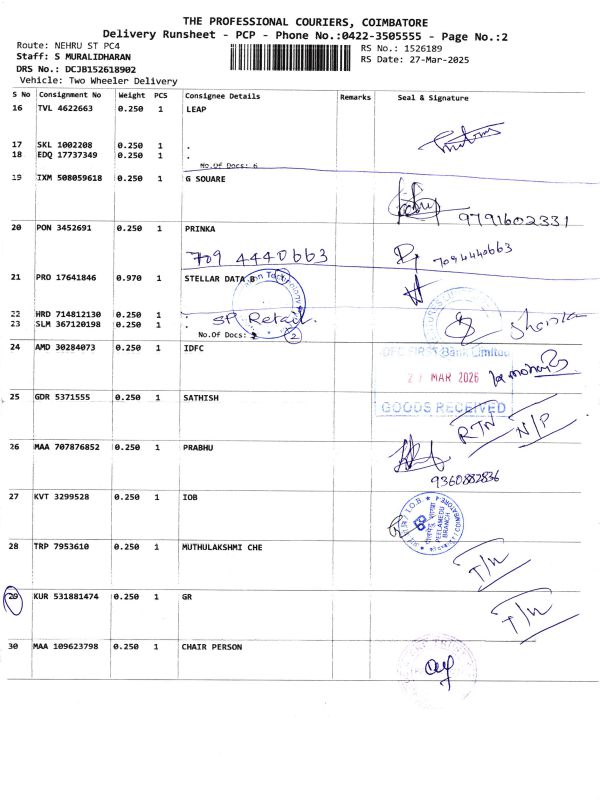 THE PROFESSIONAL COURIERS, COIMBATORE
Delivery Runsheet - PCP - Phone No.:0422-3505555 - Page No.:2
Route: NEHRU ST PC4
RS No.: 1526189
Staff: S MURALIDHARAN
RS Date: 27-Mar-2025
DRS No.: DCJB152618902
Vehicle: Two Wheeler Delivery
S No Consignment No Weight PCS Consignee Details Remarks Seal & Signature
16 TVL 4622663 0.250 1 LEAP
17 SKL 1002208 0.250 1 .
18 EDQ 17737349 0.250 1 .
No.Of Docs: 6
19 IXM 508059618 0.250 1 G SQUARE
9791602331
20 PON 3452691 0.250 1 PRINKA
709 4440663 7094440663
21 PRO 17641846 0.970 1 STELLAR DATA
22 HRD 714812130 0.250 1 .
SP Retail.
23 SLM 367120198 0.250 1 .
No.Of Docs: 2
24 AMD 30284073 0.250 1 IDFC
IDFC FIRST Bank Limited
27 MAR 2026
GOODS RECEIVED
25 GDR 5371555 0.250 1 SATHISH
RTN N/P
26 MAA 707876852 0.250 1 PRABHU
9360882836
27 KVT 3299528 0.250 1 IOB
I.O.B
PEELAMEDU
BRANCH
COIMBATORE-4
28 TRP 7953610 0.250 1 MUTHULAKSHMI CHE
29 KUR 531881474 0.250 1 GR
30 MAA 109623798 0.250 1 CHAIR PERSON